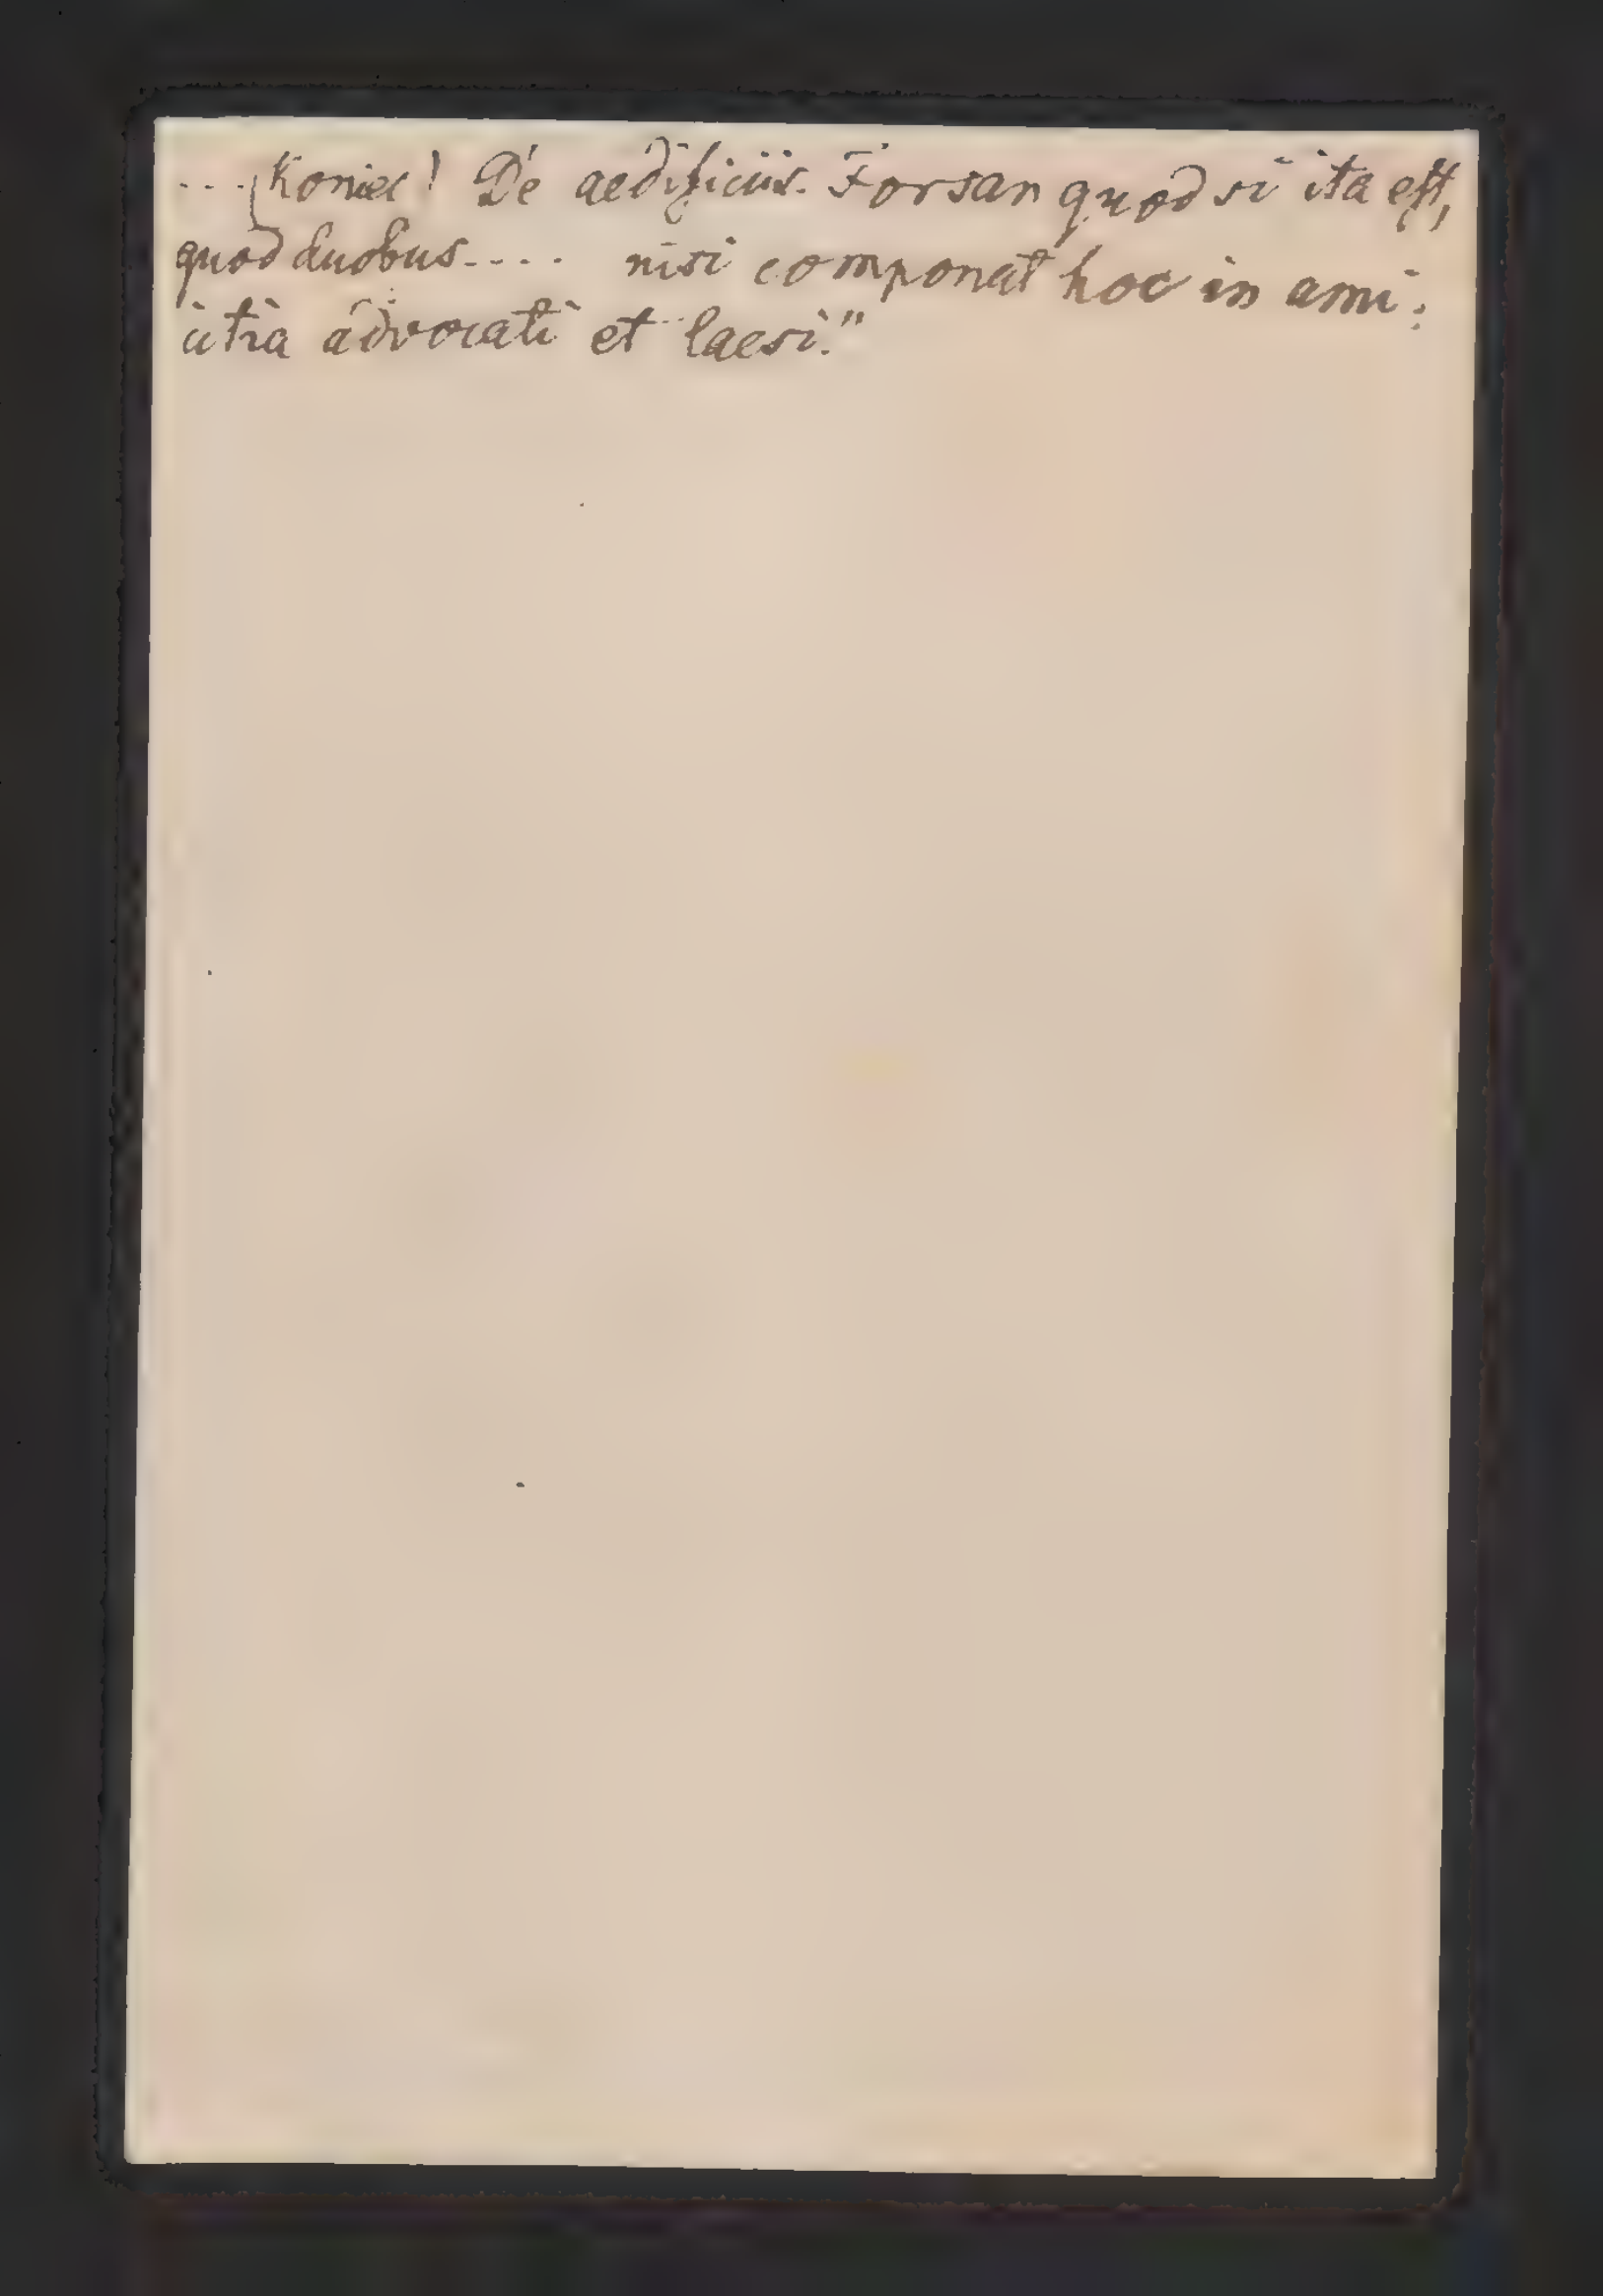 ... Koniec! De aedificiis. Forsan quod si ita est,
quod duobus.... nisi componat hoc in ami:
citia advocati et laesi."